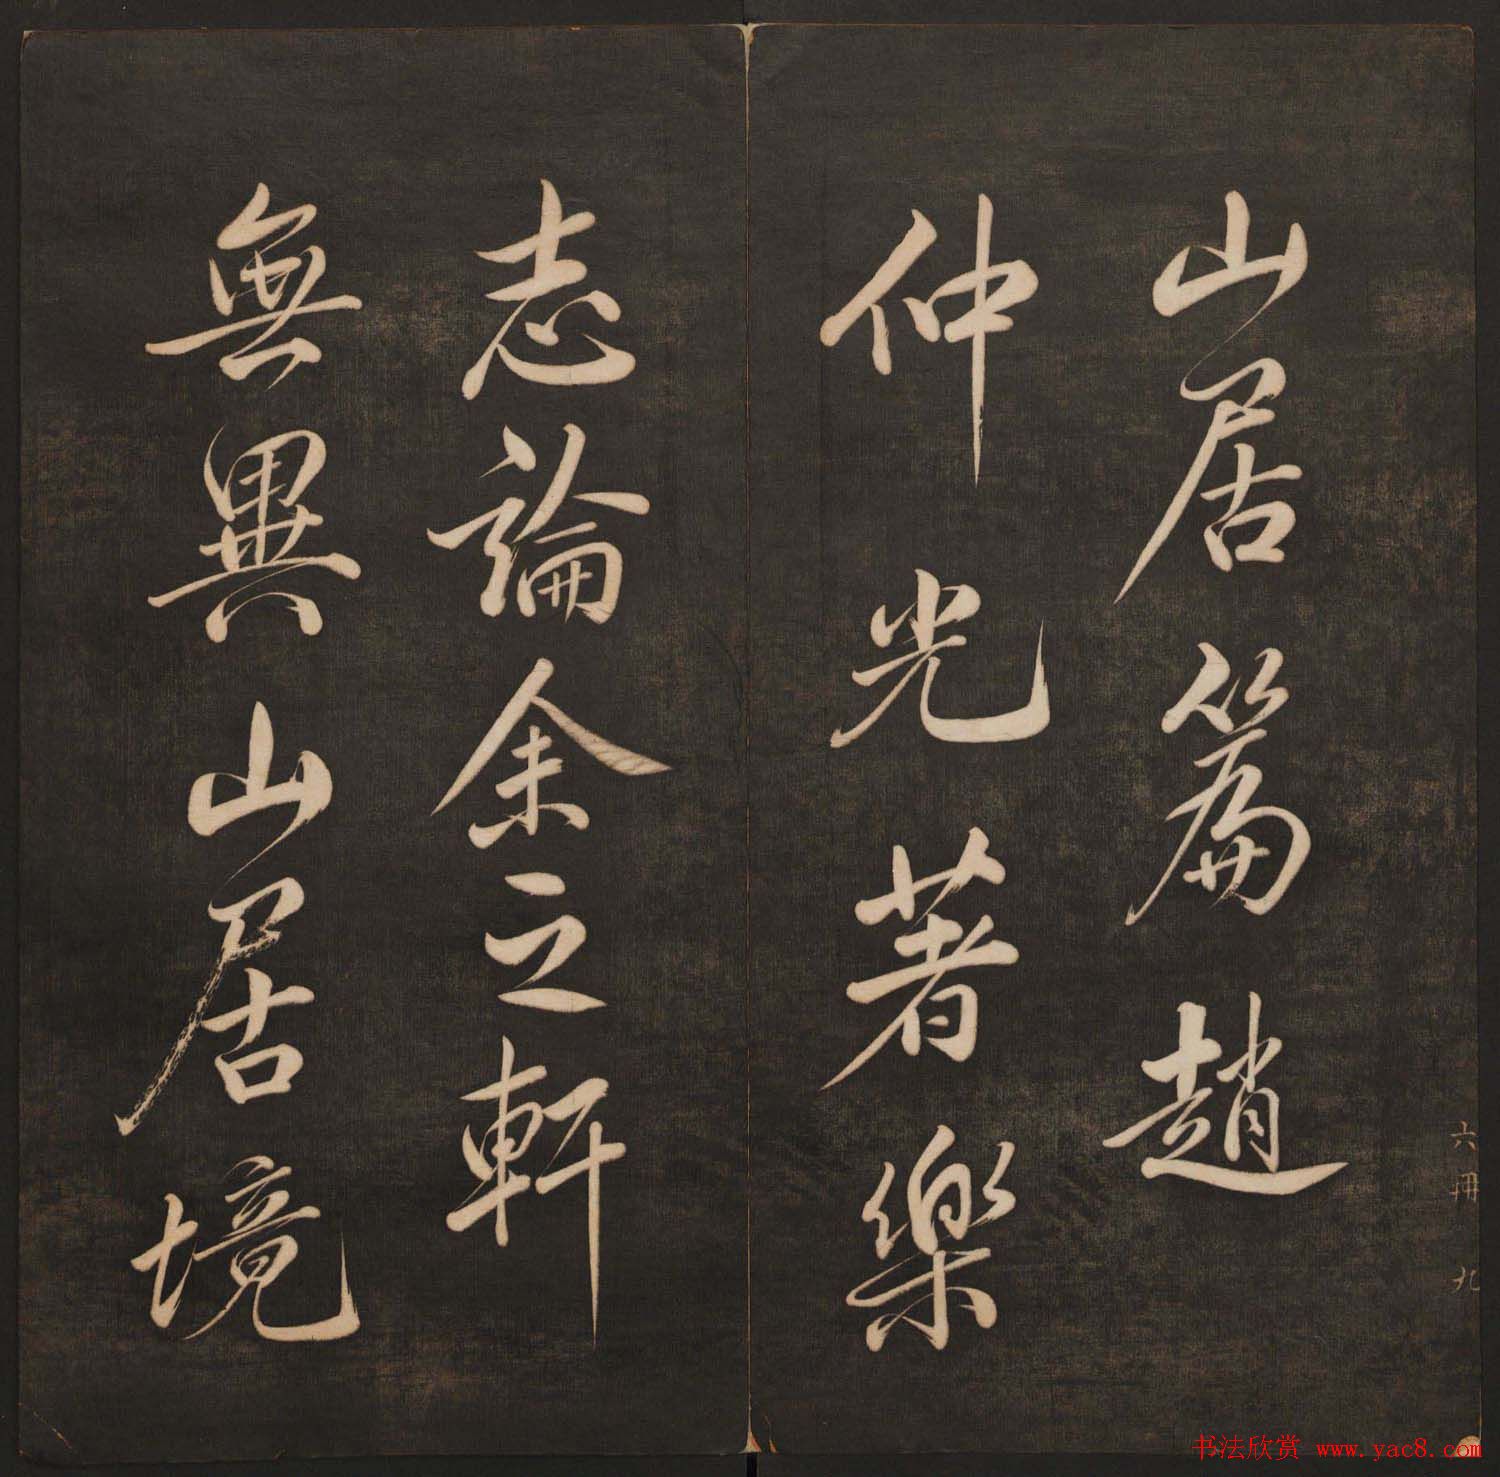 山居篇趙
仲光著樂
志論余之軒
無異山居境
六冊 九
书法欣赏 www.yac8.com